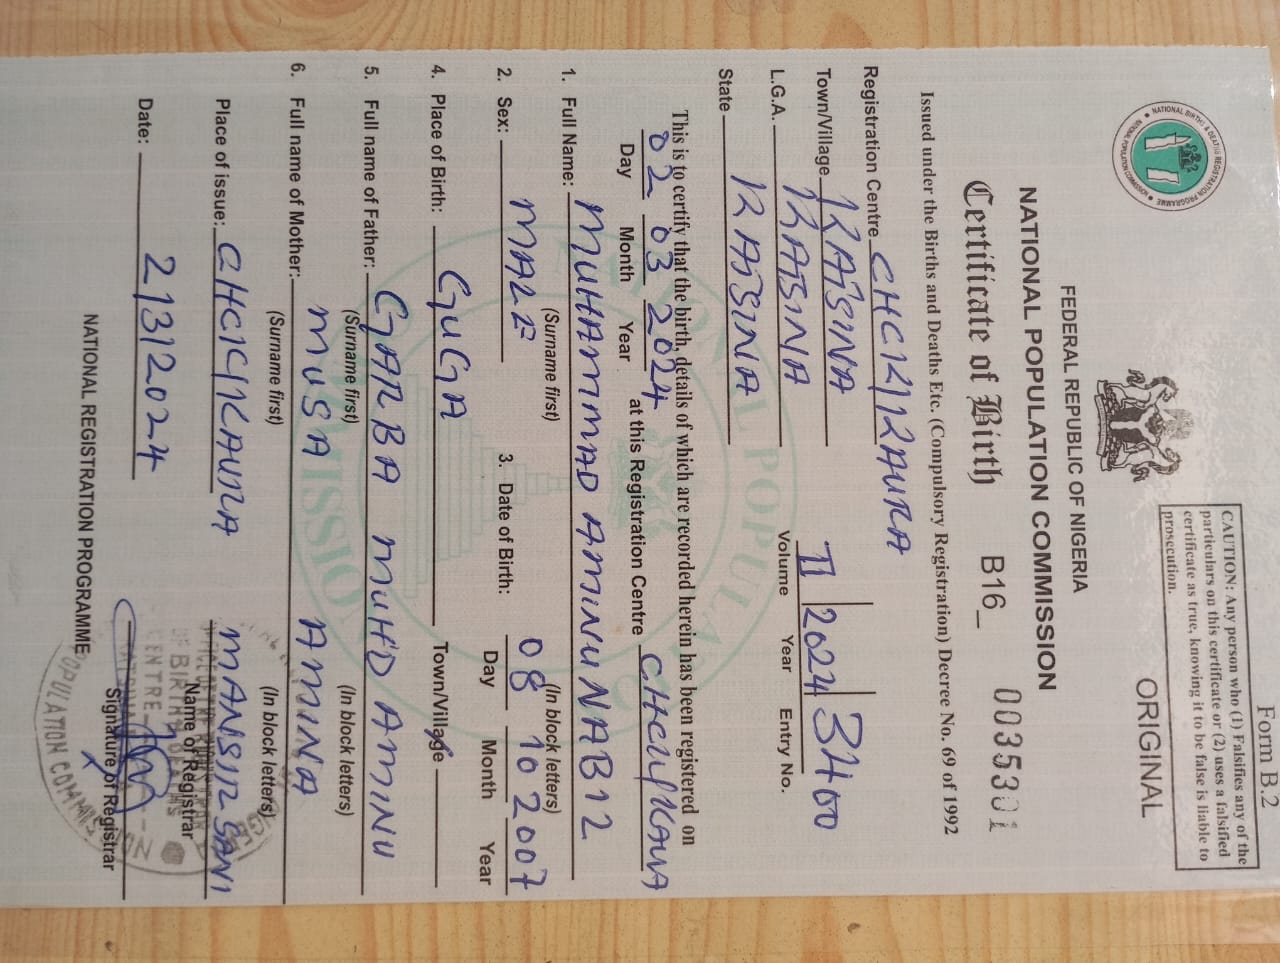 Form B.2
CAUTION: Any person who (1) Falsifies any of the
particulars on this certificate or (2) uses a falsified
certificate as true, knowing it to be false is liable to
prosecution.
ORIGINAL
FEDERAL REPUBLIC OF NIGERIA
NATIONAL POPULATION COMMISSION
Certificate of Birth B16_ 0035301
Issued under the Births and Deaths Etc. (Compulsory Registration) Decree No. 69 of 1992
Registration Centre CHCK/KAURA
Town/Village KATSINA II 2024 3400
L.G.A. KATSINA Volume Year Entry No.
State KATSINA
This is to certify that the birth, details of which are recorded herein has been registered on
02 03 2024 at this Registration Centre
Day Month Year
1. Full Name: MUHAMMAD AMINU NABIR
(Surname first) (In block letters)
2. Sex: MALE 3. Date of Birth: 08 10 2007
Day Month Year
4. Place of Birth: GUGA Town/Village
5. Full name of Father: GARBA MUH'D AMINU
(Surname first) (In block letters)
6. Full name of Mother: MUSA AMINA
(Surname first) (In block letters)
Place of issue: CHCK/KAURA MANSIR SANI
Name of Registrar
Date: 2/3/2024
Signature of Registrar
NATIONAL REGISTRATION PROGRAMME